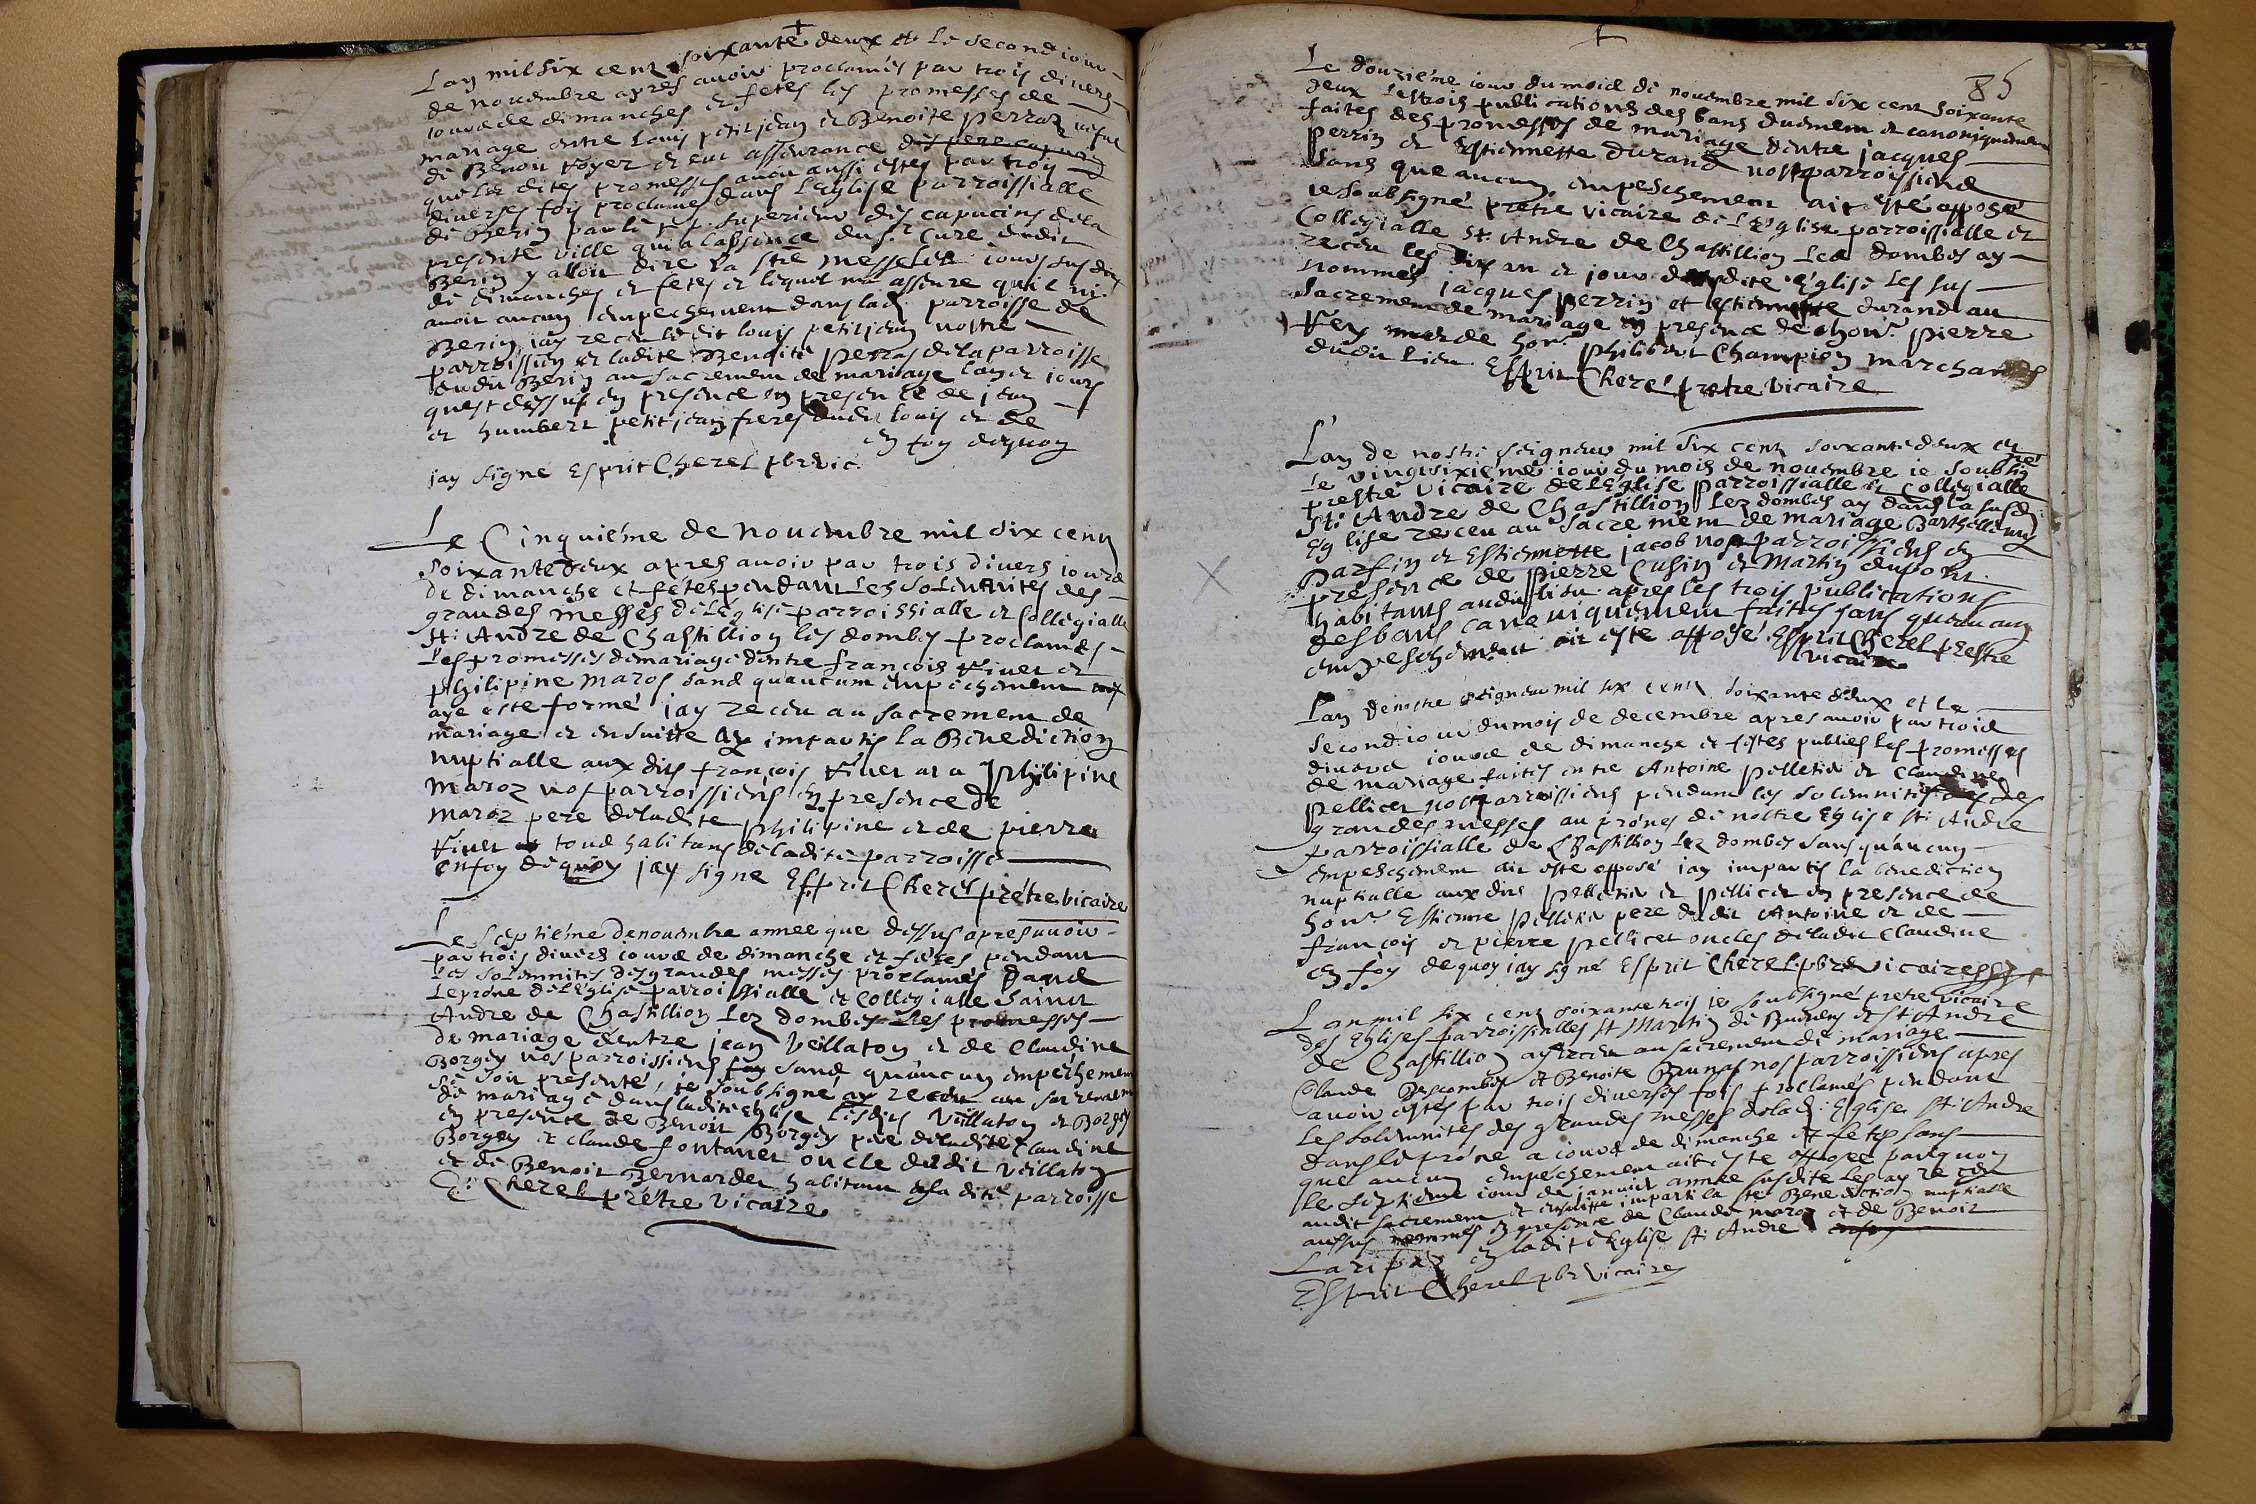 Lan mil six cent soixante deux et le second iour
de nouembre apres auoir proclamés par trois diuers
iours de dimanches et fetes les promesses de
mariage entre Louis petitjean et Benoite perraz vefue
de Benoit Royer et eut asseurance des pere capucin
que les dites promesses auoit aussi estes par trois
diuerses fois proclames dans l'Eglise parroissialle
de Berin par le superieur des capucins de la
presente ville qui a labsence du Sr Cure dudit
Berin y alloit dire la Ste messe les iours susdits
de dimanches et fetes et lequel ma asseure quil ny
auoit aucun empechement dans lad. parroisse de
Berin, iay receu ledit louis petitjean nostre
parroissien et ladite Benoite perras de la parroisse
dudit Berin au sacrement de mariage lan et iours
quest dessus en presence en presence de jean
et humbert petitjean freres dudit louis et de
en foy dequoy
jay signé Esprit Cherel pbr vic.
Le Cinquiéme de nouembre mil six cent
soixante deux apres auoir par trois diuers iours
de dimanche et fétes pendant les solennites des
grandes messes de l'Eglise parroissialle et Collegialle
St. Andre de Chastillion les dombes proclamés
les promesses de mariage dentre francois Fiuet et
philipine maros sand quaucum empechement
aye este formé jay receu au sacrement de
mariage et ensuitte ay impartis la Benediction
nuptialle aux dits francois Fiuet et a philipine
maroz nos parroissiens en presence de
maroz pere de ladite philipine et de pierre
Fiuet et tous habitans de ladite parroisse
en foy de quoy jay signé Esprit Cherel prétre vicaire
Le Septiéme de nouembre annee que dessus apres auoir
par trois diuers iours de dimanche et fétes pendant
les solemnites des grandes messes proclamés dans
le prône de l'Eglise parroissialle et Collegialle Saint
Andre de Chastillion lez dombes les promesses
de mariage dentre jean Veillaton et de Claudine
Borgey nos parroissiens sand quaucun empechement
se soit presenté, ie soubsigné ay receu au sacrement
de mariage dans ladite Eglise lesdits Veillaton et Borgey
en presence de Benoit Borgey pere de ladite Claudine
Borgey et claude fontanet oncle dudit Veillaton
et de Benoit Bernardet habitant de la dite parroisse
E. Cherel prétre vicaire
85
Le douziéme iour du mois de nouembre mil six cent soixante
deux les trois publications des bans duement et canoniquement
faites des promesses de mariage dentre jacques
Perrin et Estiennette durand nos parroissiens
sans que aucun empeschement ait esté opposé
ie soubsigné pretre vicaire de l'Eglise parroissialle et
Collegialle St. Andre de Chastillion lez dombes ay
receu les dits an et jour dans dite Eglise les sus
nommés jacques perrin et estiennette durand au
sacrement de mariage en presence de honr. pierre
Fey et de honr. philibert Champion marchands
dudit lieu. Esprit Cherel pretre vicaire
L'an de nostre seigneur mil six cent soixante deux et
le vingtsixiéme iour du mois de nouembre ie soubsigné
prestre vicaire de l'Eglise parroissialle et Collegialle
St. Andre de Chastillion lez dombes ay dans la susd.
Eglise receu au sacrement de mariage Barthellemy
Parfin et Estiennette jacob nos parroissiens en
presence de pierre Cusin et Martin dupont
habitans audit lieu apres les trois publications
des bans canoniquement faites sans quaucun
empeschement ait este opposé Esprit Cherel prestre
vicaire
Lan de nostre seigneur mil six cent soixante deux et le
second iour du mois de decembre apres auoir par trois
diuers iours de dimanche et festes publies les promesses
de mariage faites entre Antoine pelletier et Claudine
pellicet nos parroissiens pendant les solemnites des
grandes messes au prônes de nostre Eglise St. Andre
parroissialle de Chastillion lez dombes sans quaucun
empeschement ait este opposé iay impartis la benediction
nuptialle aux dits pelletier et pellicet en presence de
honr. Estienne pelletier pere dudit Antoine et de
françois et pierre pellicet oncles de ladit Claudine
en foy dequoy iay signé Esprit Cherel pbre vicaire
Lan mil six cent soixante trois ie soubsigné pretre vicaire
des Eglises parroissialles St Martin de Buenens et St Andre
de Chastillion ay receu au sacrement de mariage
Claude Bescombes et Benoite Brunas nos parroissiens apres
auoir estés par trois diuerses fois proclamés pendant
les solemnites des grandes messes de lad. Eglise St. Andre
dans le prône a iours de dimanche et fetes sans
que aucun empechement ait este opposé parquoy
le septieme iour de januier annee susdite les ay receu
audit sacrement et ensuitte imparti la ste Benediction nuptialle
aux sus nommés en presence de Claude maroz et de Benoit
en ladite Eglise St. Andre
Esprit Cherel pbr vicaire